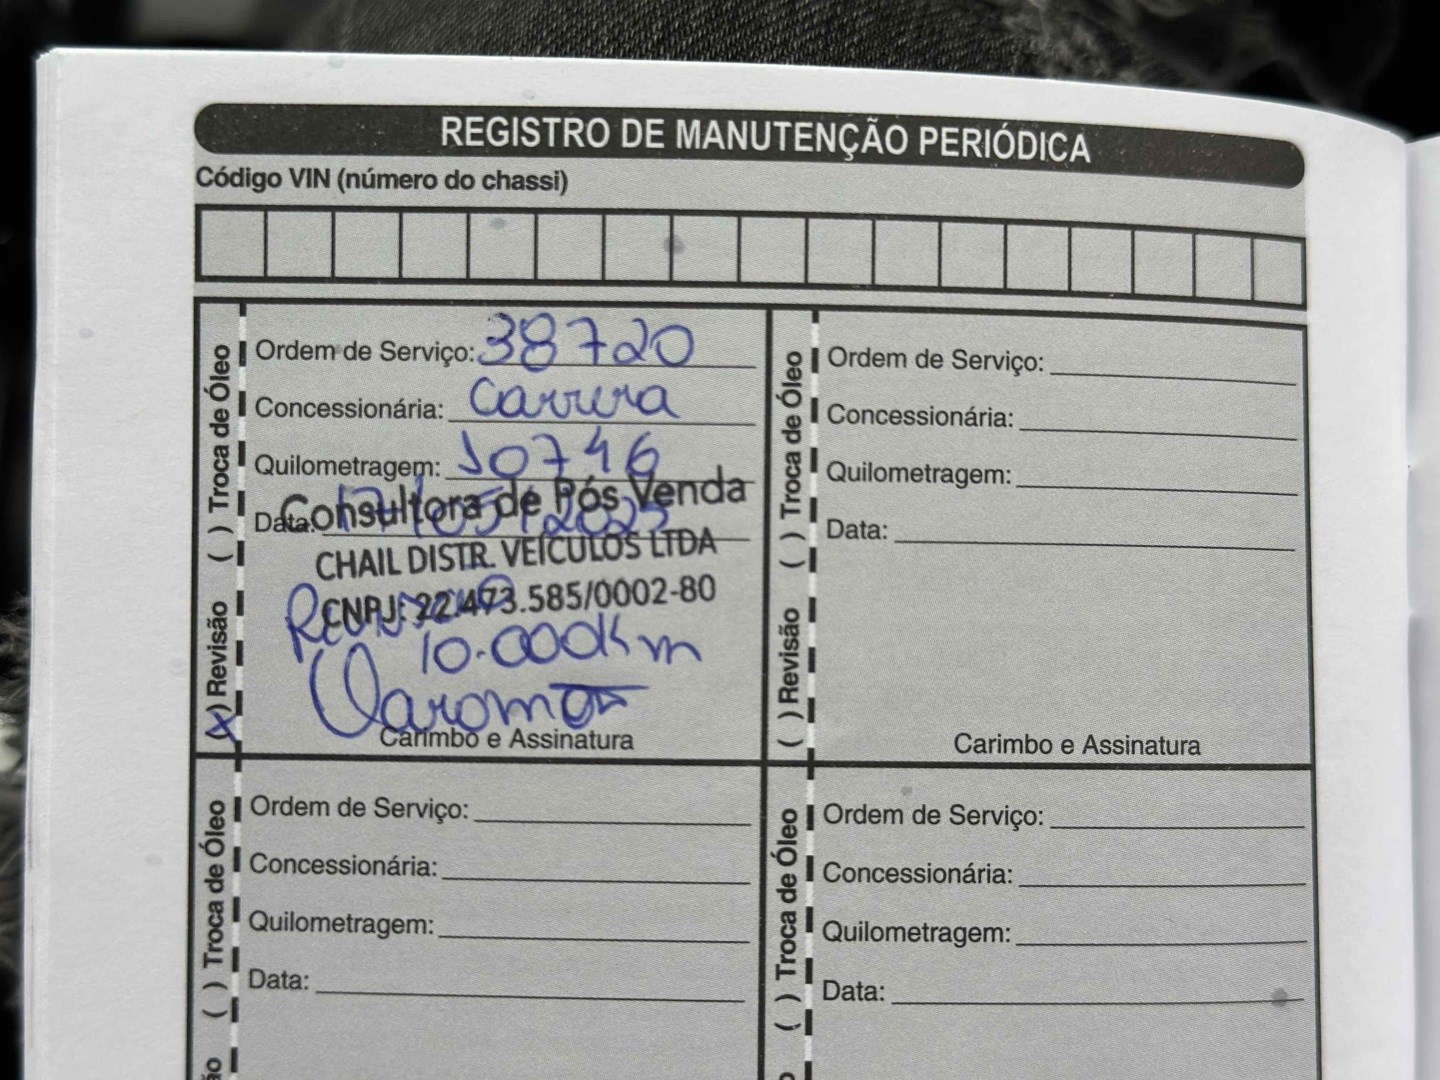 REGISTRO DE MANUTENÇÃO PERIÓDICA
Código VIN (número do chassi)
( ) Troca de Óleo
(X) Revisão
Ordem de Serviço: 38720
Concessionária: Carrera
Quilometragem: 10746
Data: 17/05/2025
Consultora de Pós Venda
CHAIL DISTR. VEÍCULOS LTDA
CNPJ: 22.473.585/0002-80
Revisão
10.000Km
Carimbo e Assinatura
( ) Troca de Óleo
( ) Revisão
Ordem de Serviço:
Concessionária:
Quilometragem:
Data:
Carimbo e Assinatura
( ) Troca de Óleo
ão
Ordem de Serviço:
Concessionária:
Quilometragem:
Data:
( ) Troca de Óleo
Ordem de Serviço:
Concessionária:
Quilometragem:
Data: